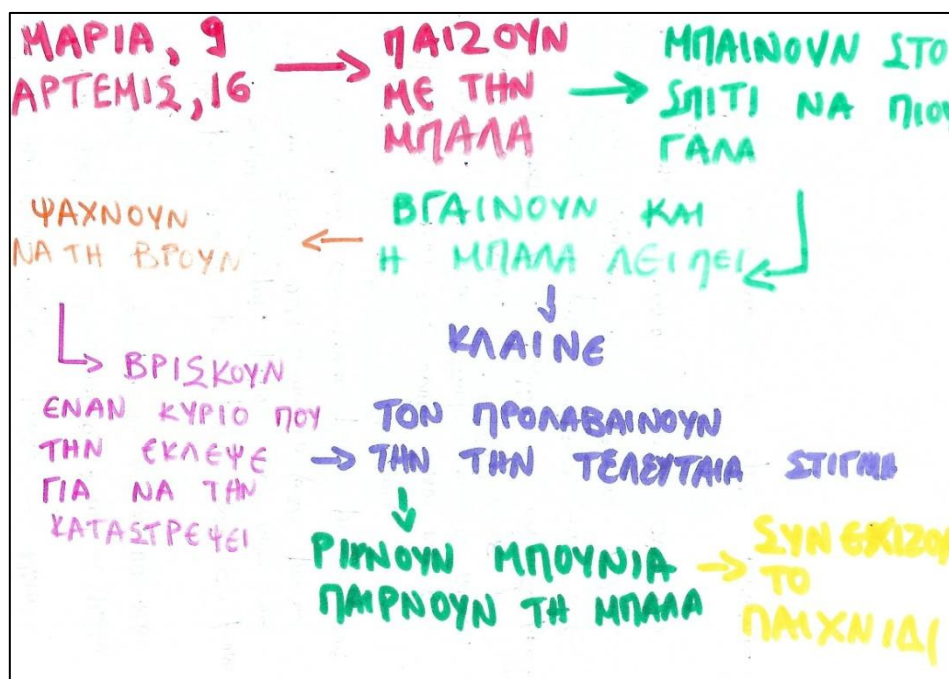 ΜΑΡΙΑ, 9
ΑΡΤΕΜΙΣ, 16
ΠΑΙΖΟΥΝ
ΜΕ ΤΗΝ
ΜΠΑΛΑ
ΜΠΑΙΝΟΥΝ ΣΤΟ
ΣΠΙΤΙ ΝΑ ΠΙΟΥ
ΓΑΛΑ
ΒΓΑΙΝΟΥΝ ΚΑΙ
Η ΜΠΑΛΑ ΛΕΙΠΕΙ
ΨΑΧΝΟΥΝ
ΝΑ ΤΗ ΒΡΟΥΝ
ΚΛΑΙΝΕ
ΒΡΙΣΚΟΥΝ
ΕΝΑΝ ΚΥΡΙΟ ΠΟΥ
ΤΗΝ ΕΚΛΕΨΕ
ΓΙΑ ΝΑ ΤΗΝ
ΚΑΤΑΣΤΡΕΨΕΙ
ΤΟΝ ΠΡΟΛΑΒΑΙΝΟΥΝ
ΤΗΝ ΤΗΝ ΤΕΛΕΥΤΑΙΑ ΣΤΙΓΜΗ
ΡΙΧΝΟΥΝ ΜΠΟΥΝΙΑ
ΠΑΙΡΝΟΥΝ ΤΗ ΜΠΑΛΑ
ΣΥΝΕΧΙΖΟΥ
ΤΟ
ΠΑΙΧΝΙΔΙ